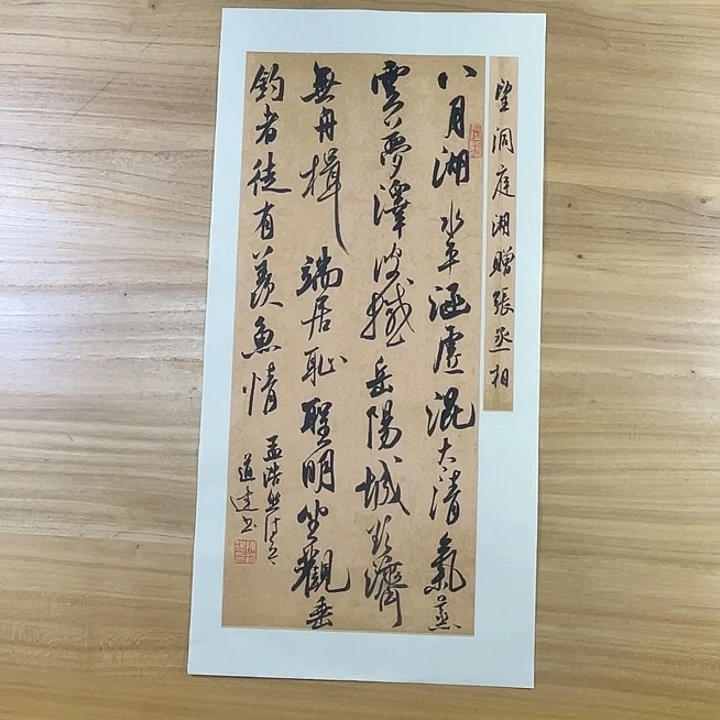 望洞庭湖贈張丞相
八月湖水平涵虛混大清氣蒸
雲夢澤波撼岳陽城欲濟
無舟楫端居恥聖明坐觀垂
釣者徒有羨魚情
孟浩然詩句
道達書